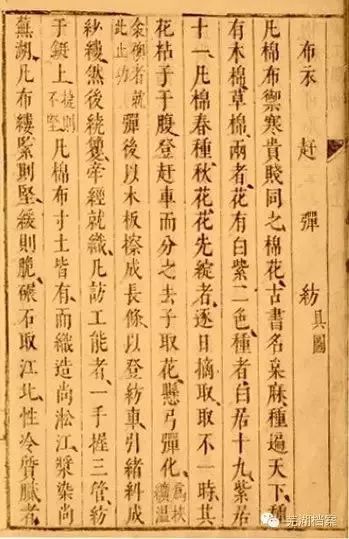 布衣 趕 彈 紡 具圖
凡棉布禦寒貴賤同之棉花古書名枲麻種遍天下種
有木棉草棉兩者花有白紫二色種者白居十九紫居
十一凡棉春種秋花花先綻者逐日摘取取不一時其
花粘子于腹登趕車而分之去子取花懸弓彈化為挾纊溫
衾襖者就此止功彈後以木板擦成長條以登紡車引緒糾成
紗縷然後繞籰牽經就織凡訪工能者一手握三管紡
于鋌上捷則不堅凡棉布寸土皆有而織造尚淞江漿染尚
蕪湖凡布縷緊則堅緩則脆碾石取江北性冷質膩者
芜湖档案